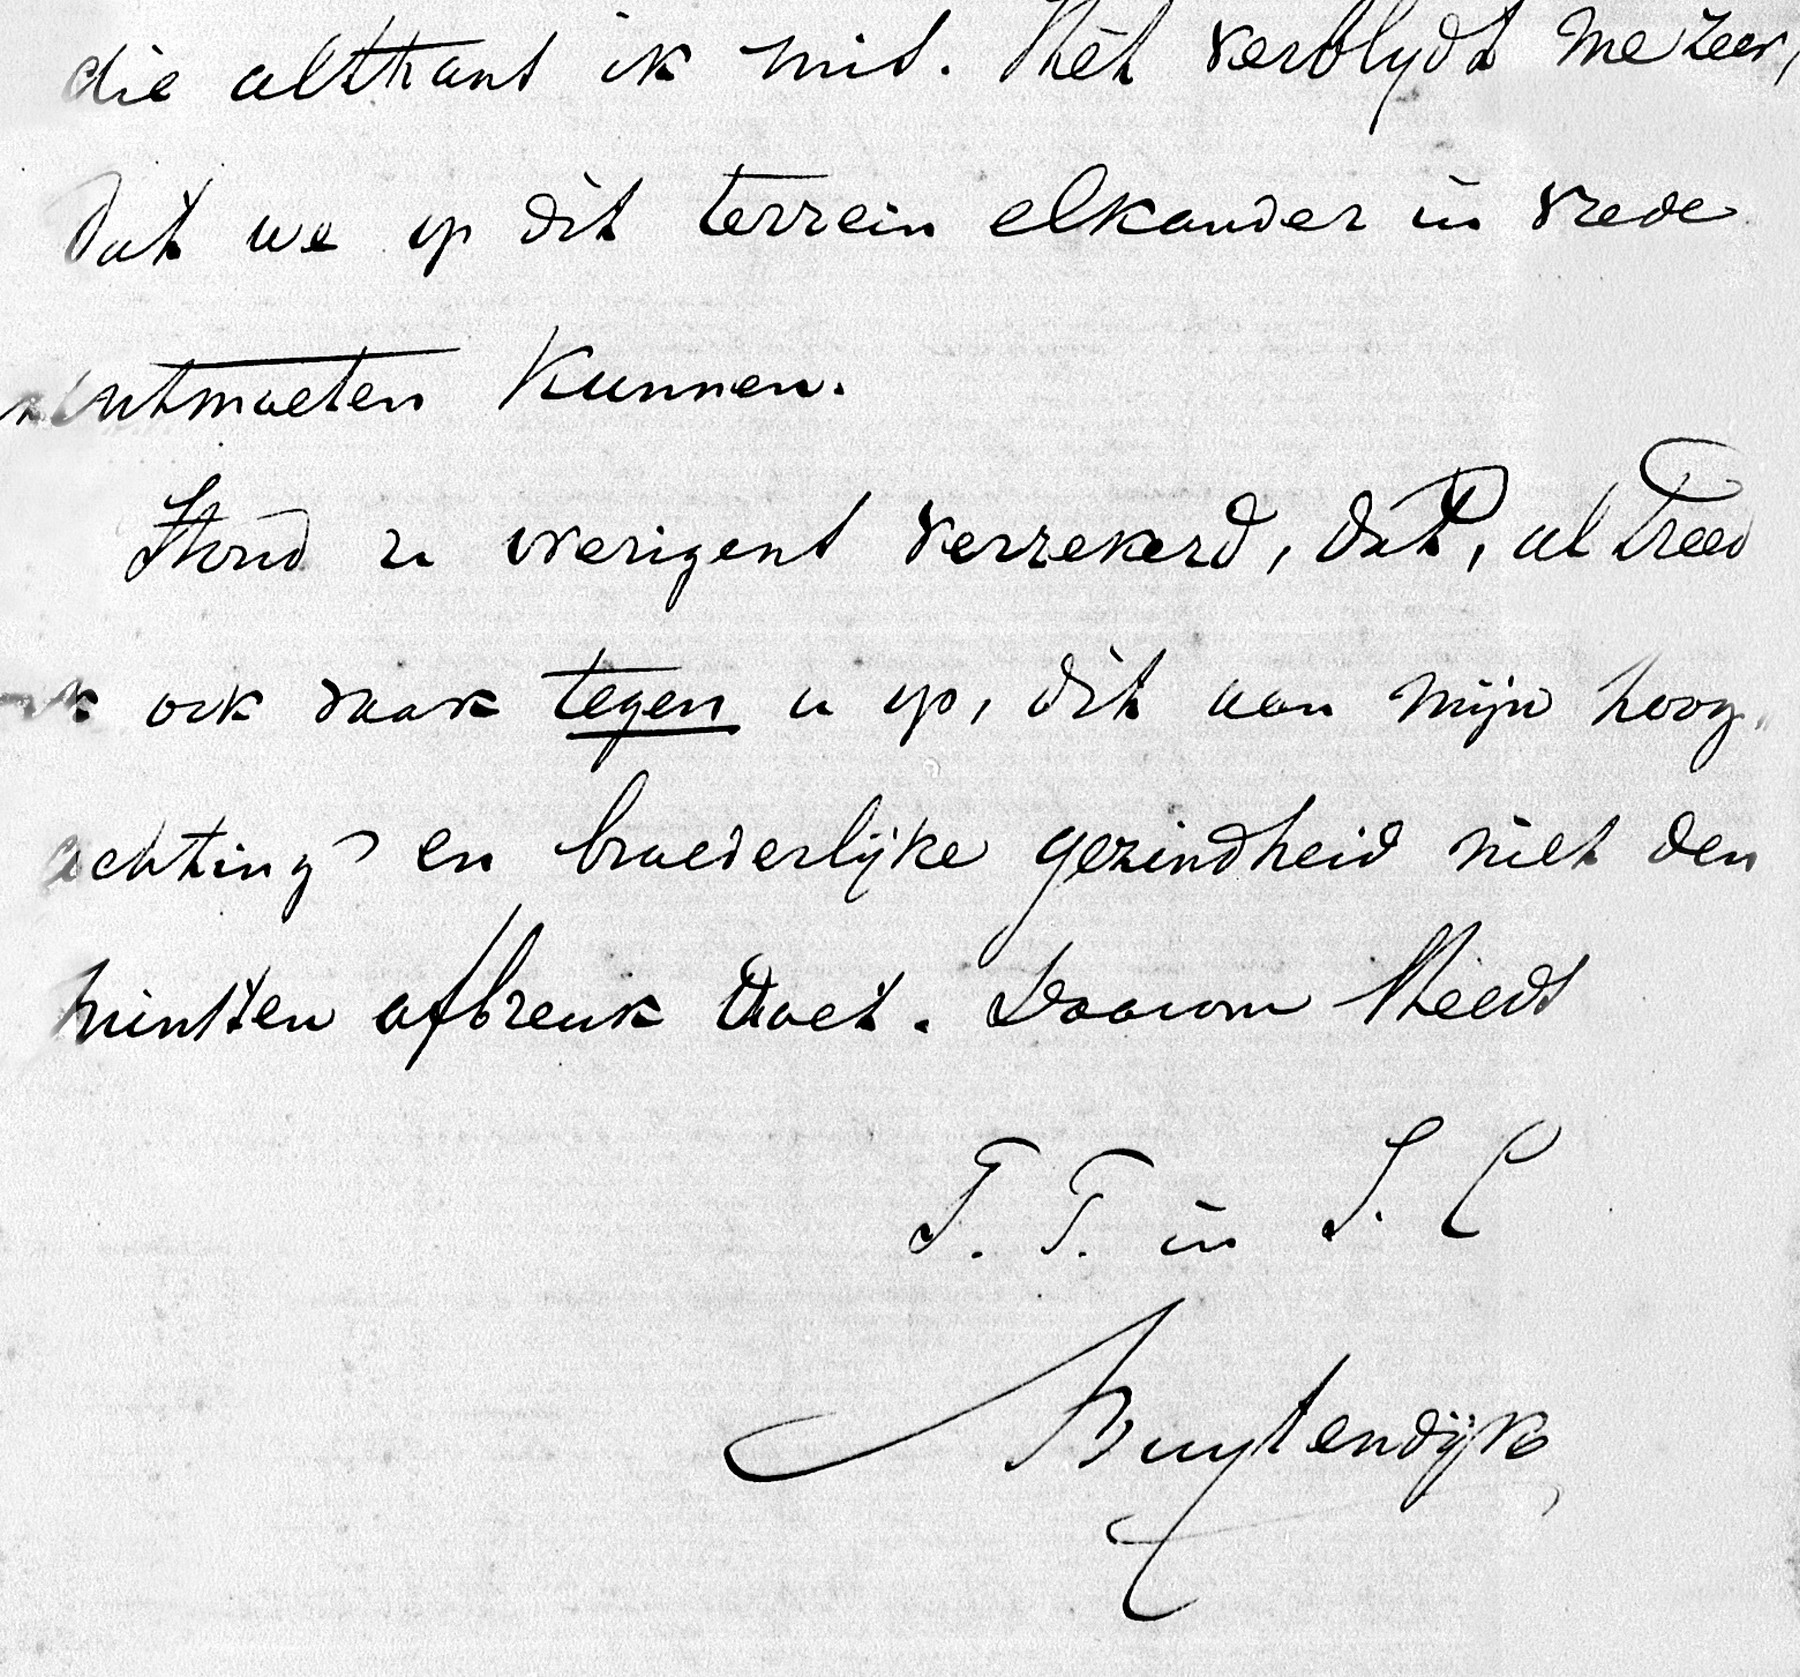 die althans ik mis. Het verblydt me zeer,
dat we op dit terrein elkander in vrede
ontmoeten kunnen.
Houd u overigens verzekerd, dat, al treed
ik ook vaak tegen u op, dit aan mijn hoog-
achting en broederlijke gezindheid niet den
minsten afbreuk doet. Daarom steeds
T. T. in J. C
Buytendijk